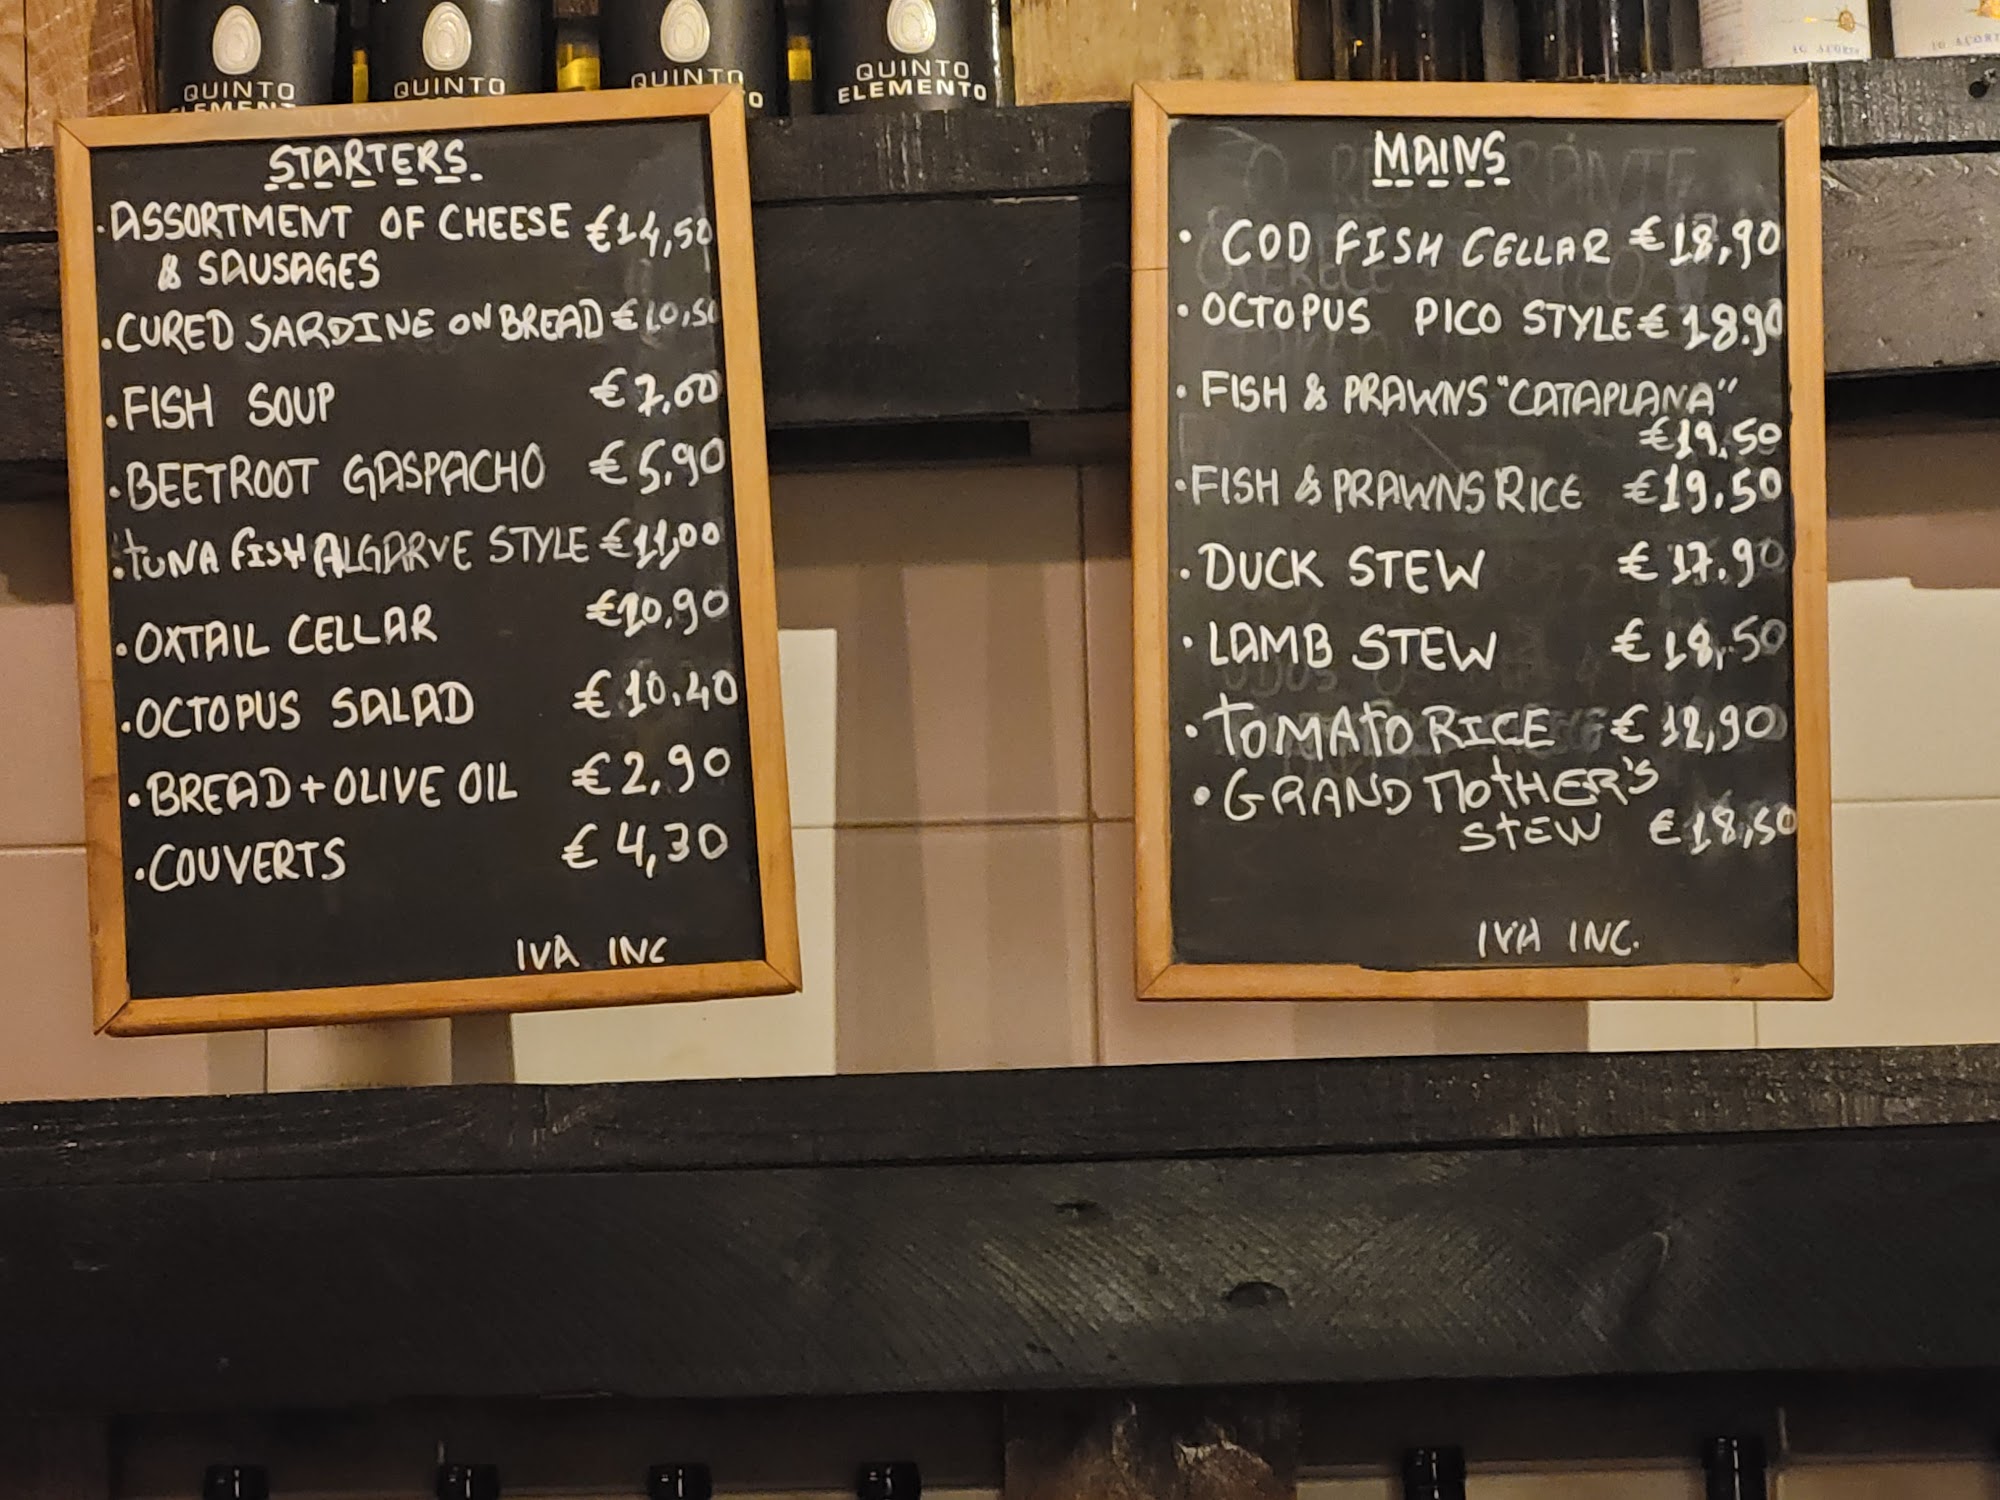 QUINTO
ELEMENTO
QUINTO
QUINTO
QUINTO
ELEMENTO
STARTERS.
· ASSORTMENT OF CHEESE €14,50
& SAUSAGES
· CURED SARDINE ON BREAD €10,50
· FISH SOUP €7,60
· BEETROOT GASPACHO €5,90
· TUNA FISH ALGARVE STYLE €11,00
· OXTAIL CELLAR €10,90
· OCTOPUS SALAD €10.40
· BREAD + OLIVE OIL €2,90
· COUVERTS €4,30
IVA INC
MAINS
· COD FISH CELLAR €18,90
· OCTOPUS PICO STYLE €18.90
· FISH & PRAWNS "CATAPLANA"
€19.50
· FISH & PRAWNS RICE €19.50
· DUCK STEW €17.90
· LAMB STEW €18,50
· TOMATO RICE €12,90
· GRANDMOTHER'S
STEW €18,50
IVA INC.